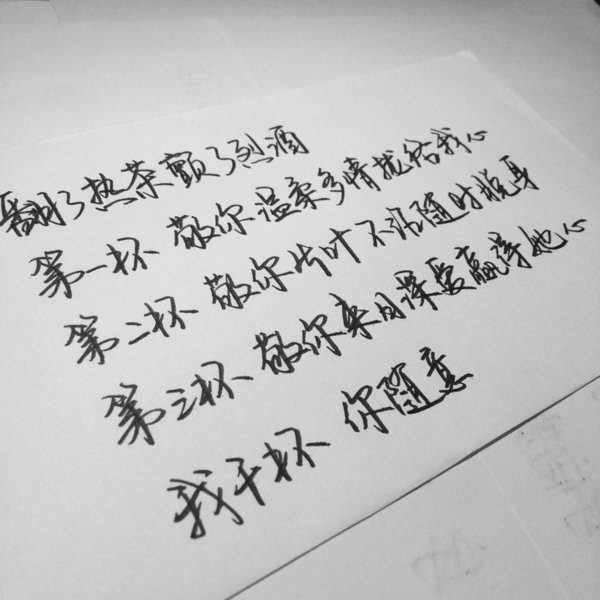 翻了热茶颤了烈酒
第一杯 敬你温柔多情扰给我心
第二杯 敬你片叶不沾随时脱身
第三杯 敬你来日深爱赢得她心
我干杯 你随意